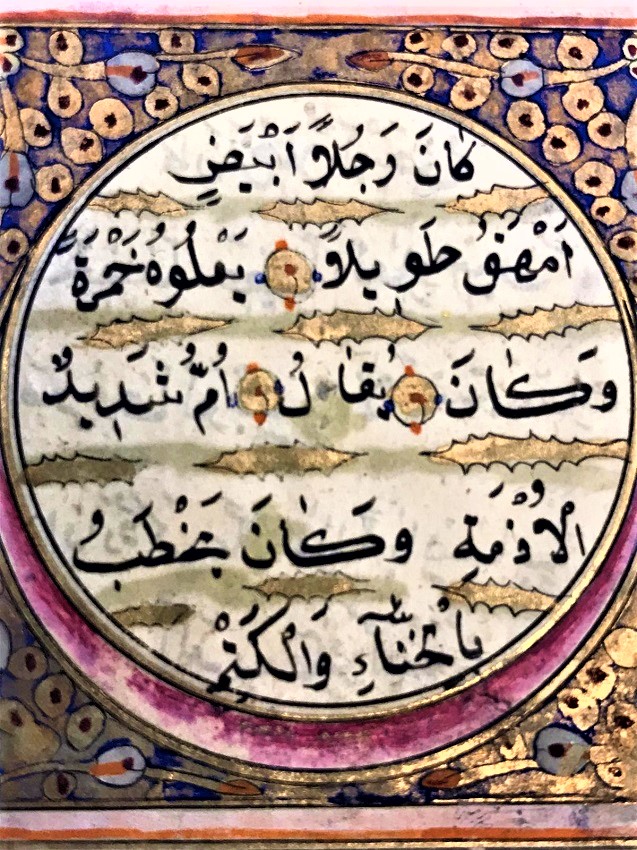 كَانَ رَجُلًا اَبْيَضَ
اَمْهَقُ طَوِيلًا يَعْلُوهُ حُمْرَةٌ
وَكَانَ يُقَالُ اُمُّ شَدِيدُ
الْاُدْمَةِ وَكَانَ يَخْطَبُ
بِالْحِنَّاءِ وَالْكَتَمِ